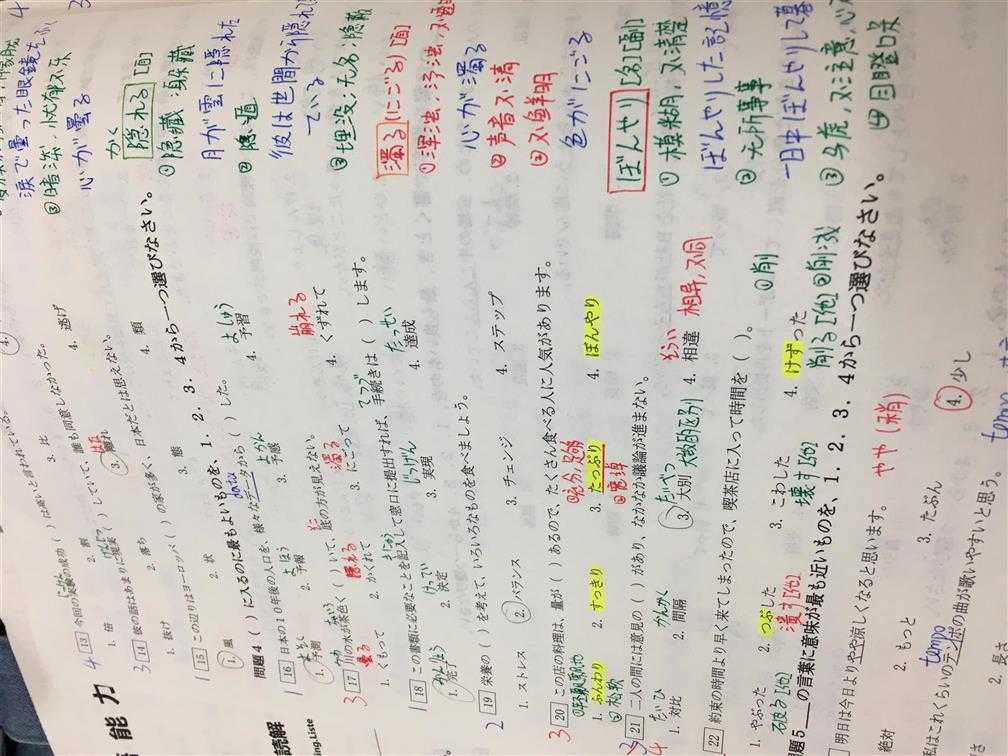 能力
読解
4 13 今回の実験の成功( )は高いと言われている。
1. 倍 2. 割 3. 比
3 14 彼の話はあまりに現実( )していて、誰も同意しなかった。
1. 抜け 2. 落ち 3. 離れ 4. 逃げ
1 15 この辺りはヨーロッパ( )の家が多く、日本だとは思えない。
1. 風 2. 状 3. 態 4. 類
問題4 ( )に入るのに最もよいものを、1. 2. 3. 4から一つ選びなさい。
1 16 日本の10年後の人口を、様々なデータから( )した。
data
1. 予測 2. 予報 3. 予感 4. 予習
よほう よかん よしゅう
3 17 川の水が茶色く( )いて、底の方が見えない。
曇る 隠れる 濁る 崩れる
1. くもって 2. かくれて 3. にごって 4. くずれて
1 18 この書類に必要なことを記入して窓口に提出すれば、手続きは( )します。
1. 完了 2. 決定 3. 実現 4. 達成
かんりょう けってい じつげん たっせい
2 19 栄養の( )を考えて、いろいろなものを食べましょう。
1. ストレス 2. バランス 3. チェンジ 4. ステップ
3 20 この店の料理は、量が( )あるので、たくさん食べる人に人気があります。
1. ふんわり 2. すっきり 3. たっぷり 4. ぼんやり
②松軟
3 21 二人の間には意見の( )があり、なかなか議論が進まない。
1. 対比 2. 間隔 3. 大別 4. 相違
たいひ かんかく たいべつ そうい 相异,不同
4 22 約束の時間より早く来てしまったので、喫茶店に入って時間を( )。
1. やぶった 2. つぶした 3. こわした 4. けずった
破る[他] 潰す[他] 壊す[他] 削る[他] ①削 ②削减
問題5 の言葉に意味が最も近いものを、1. 2. 3. 4から一つ選びなさい。
明日は今日よりやや涼しくなると思います。
やや(稍)
絶対 2. もっと 3. たぶん 4. 少し
tempo
私はこれくらいのテンポの曲が歌いやすいと思う。
2. 長さ
tempo
涙で曇った眼鏡をふ
心が曇る
かく
隠れる[自]
①隐藏;躲藏
月が雲に隠れた
②隐遁
彼は世間から隠れ
ている
③埋没;无名;隐蔽
濁る(にごる)[自]
心が濁る
②声音不清
③不鲜明
色がにごる
ぼんやり[名][副]
①模糊,不清楚
ぼんやりした記憶
②无所事事
一日中ぼんやりして暮
④目瞪口呆